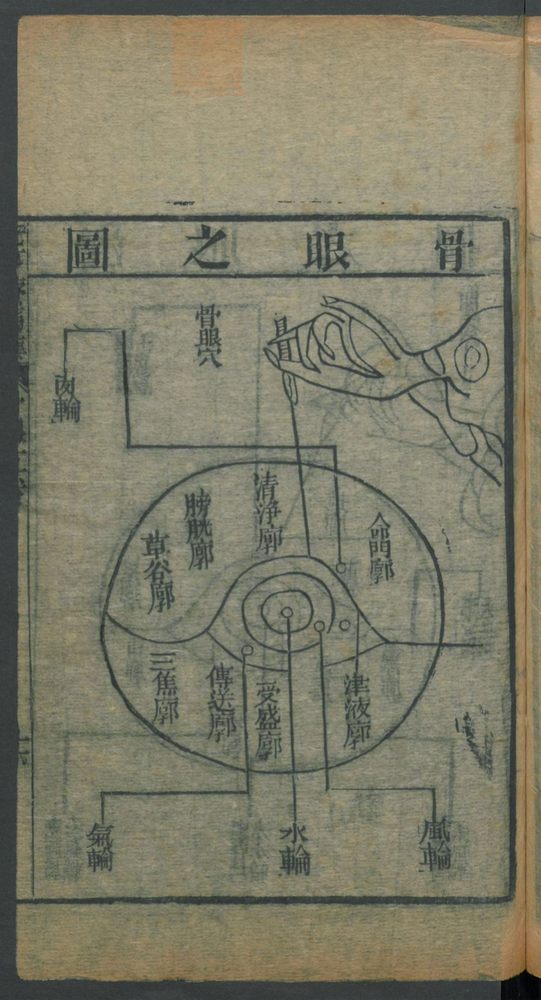 骨眼之圖
骨眼穴
肉輪
清淨廓
膀胱廓
草谷廓
命門廓
三焦廓
傳送廓
受盛廓
津液廓
氣輪
水輪
風輪